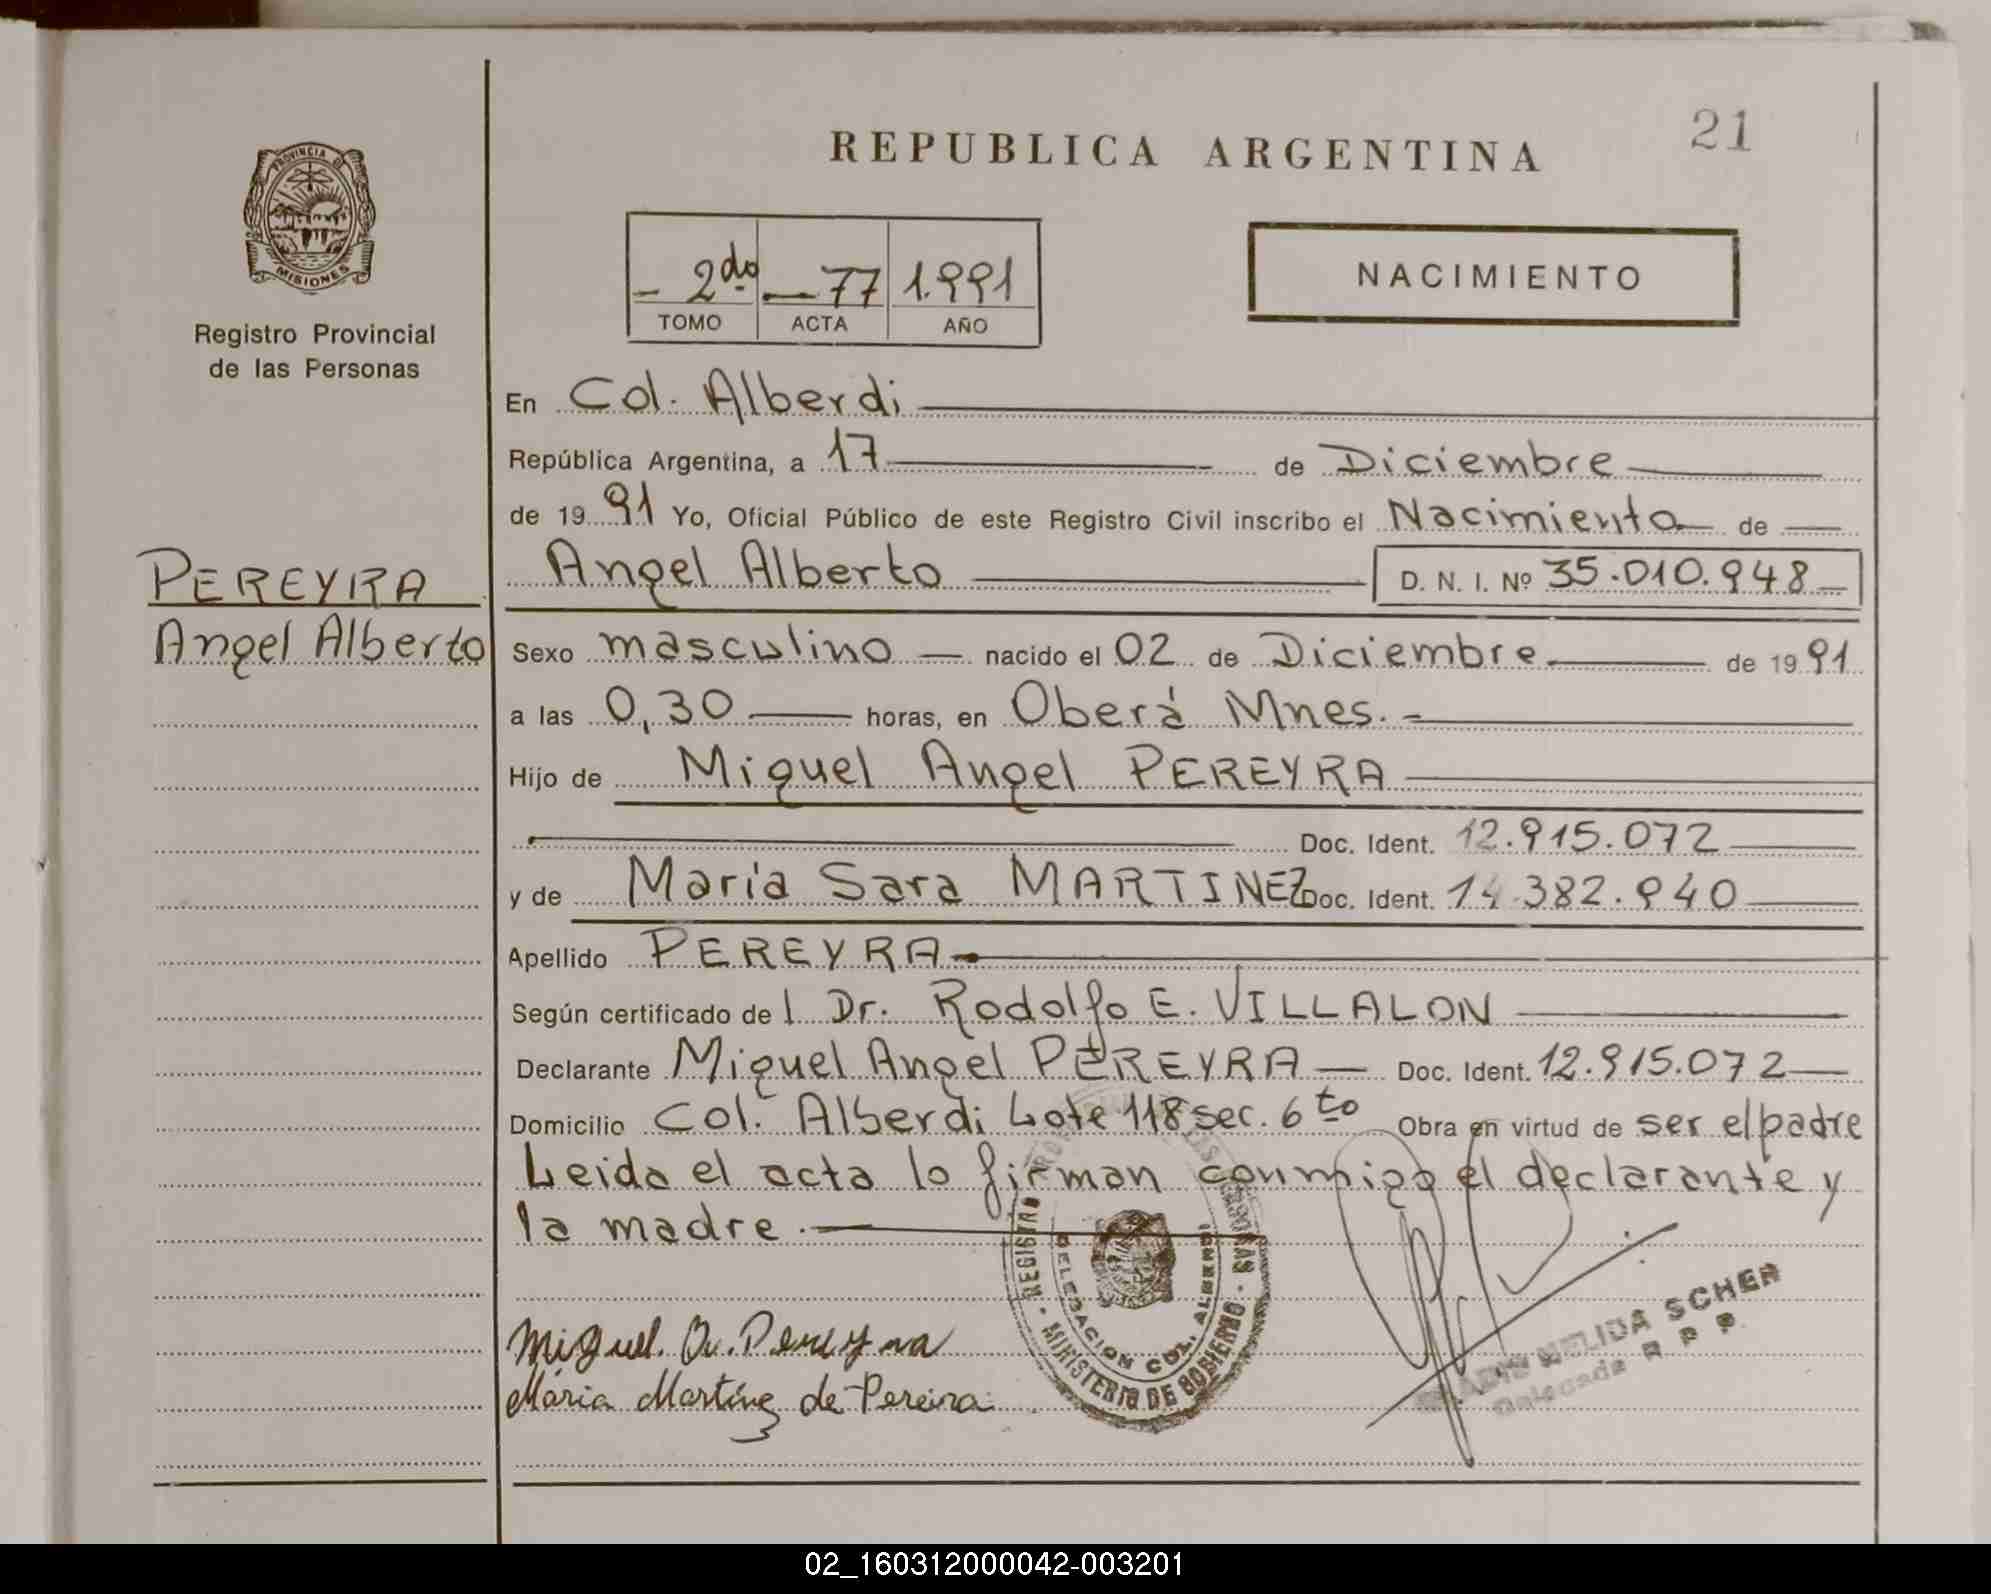 21
REPUBLICA ARGENTINA
PROVINCIA DE
MISIONES
Registro Provincial
de las Personas
2do 77 1.991
TOMO ACTA AÑO
NACIMIENTO
En Col. Alberdi
República Argentina, a 17 de Diciembre
de 19 91 Yo, Oficial Público de este Registro Civil inscribo el Nacimiento de
Angel Alberto D. N. I. Nº 35.010.948
PEREYRA
Angel Alberto
Sexo masculino nacido el 02 de Diciembre de 19 91
a las 0,30 horas, en Oberá Mnes.
Hijo de Miguel Angel PEREYRA
Doc. Ident. 12.915.072
y de Maria Sara MARTINEZ Doc. Ident. 14.382.940
Apellido PEREYRA
Según certificado de l Dr. Rodolfo E. VILLALON
Declarante Miguel Angel PEREYRA Doc. Ident. 12.915.072
Domicilio Col. Alberdi Lote 118 sec. 6to Obra en virtud de ser el padre
Leida el acta lo firman conmigo el declarante y
la madre.
REGISTRO PERSONAS
DELEGACION COL. ALBERDI
MINISTERIO DE GOBIERNO
NELIDA SCHER
Delegada R P P.
Miguel. A. Pereyra
María Martínez de Pereira
02_160312000042-003201